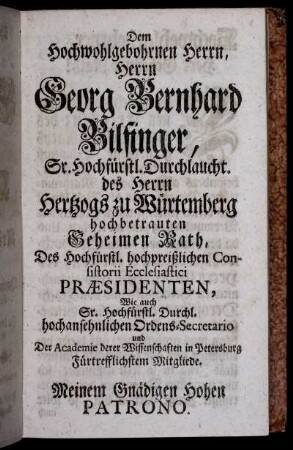 Dem
Hochwohlgebohrnen Herrn,
Herrn
Georg Bernhard
Bilfinger,
Sr. Hochfürstl. Durchlaucht.
des Herrn
Hertzogs zu Würtemberg
hochbetrauten
Geheimen Rath,
Des Hochfürstl. hochpreißlichen Con-
sistorii Ecclesiastici
PRÆSIDENTEN,
Wie auch
Sr. Hochfürstl. Durchl.
hochansehnlichen Ordens-Secretario
und
Der Academie derer Wissenschaften in Petersburg
Fürtrefflichstem Mitgliede.
Meinem Gnädigen Hohen
PATRONO.